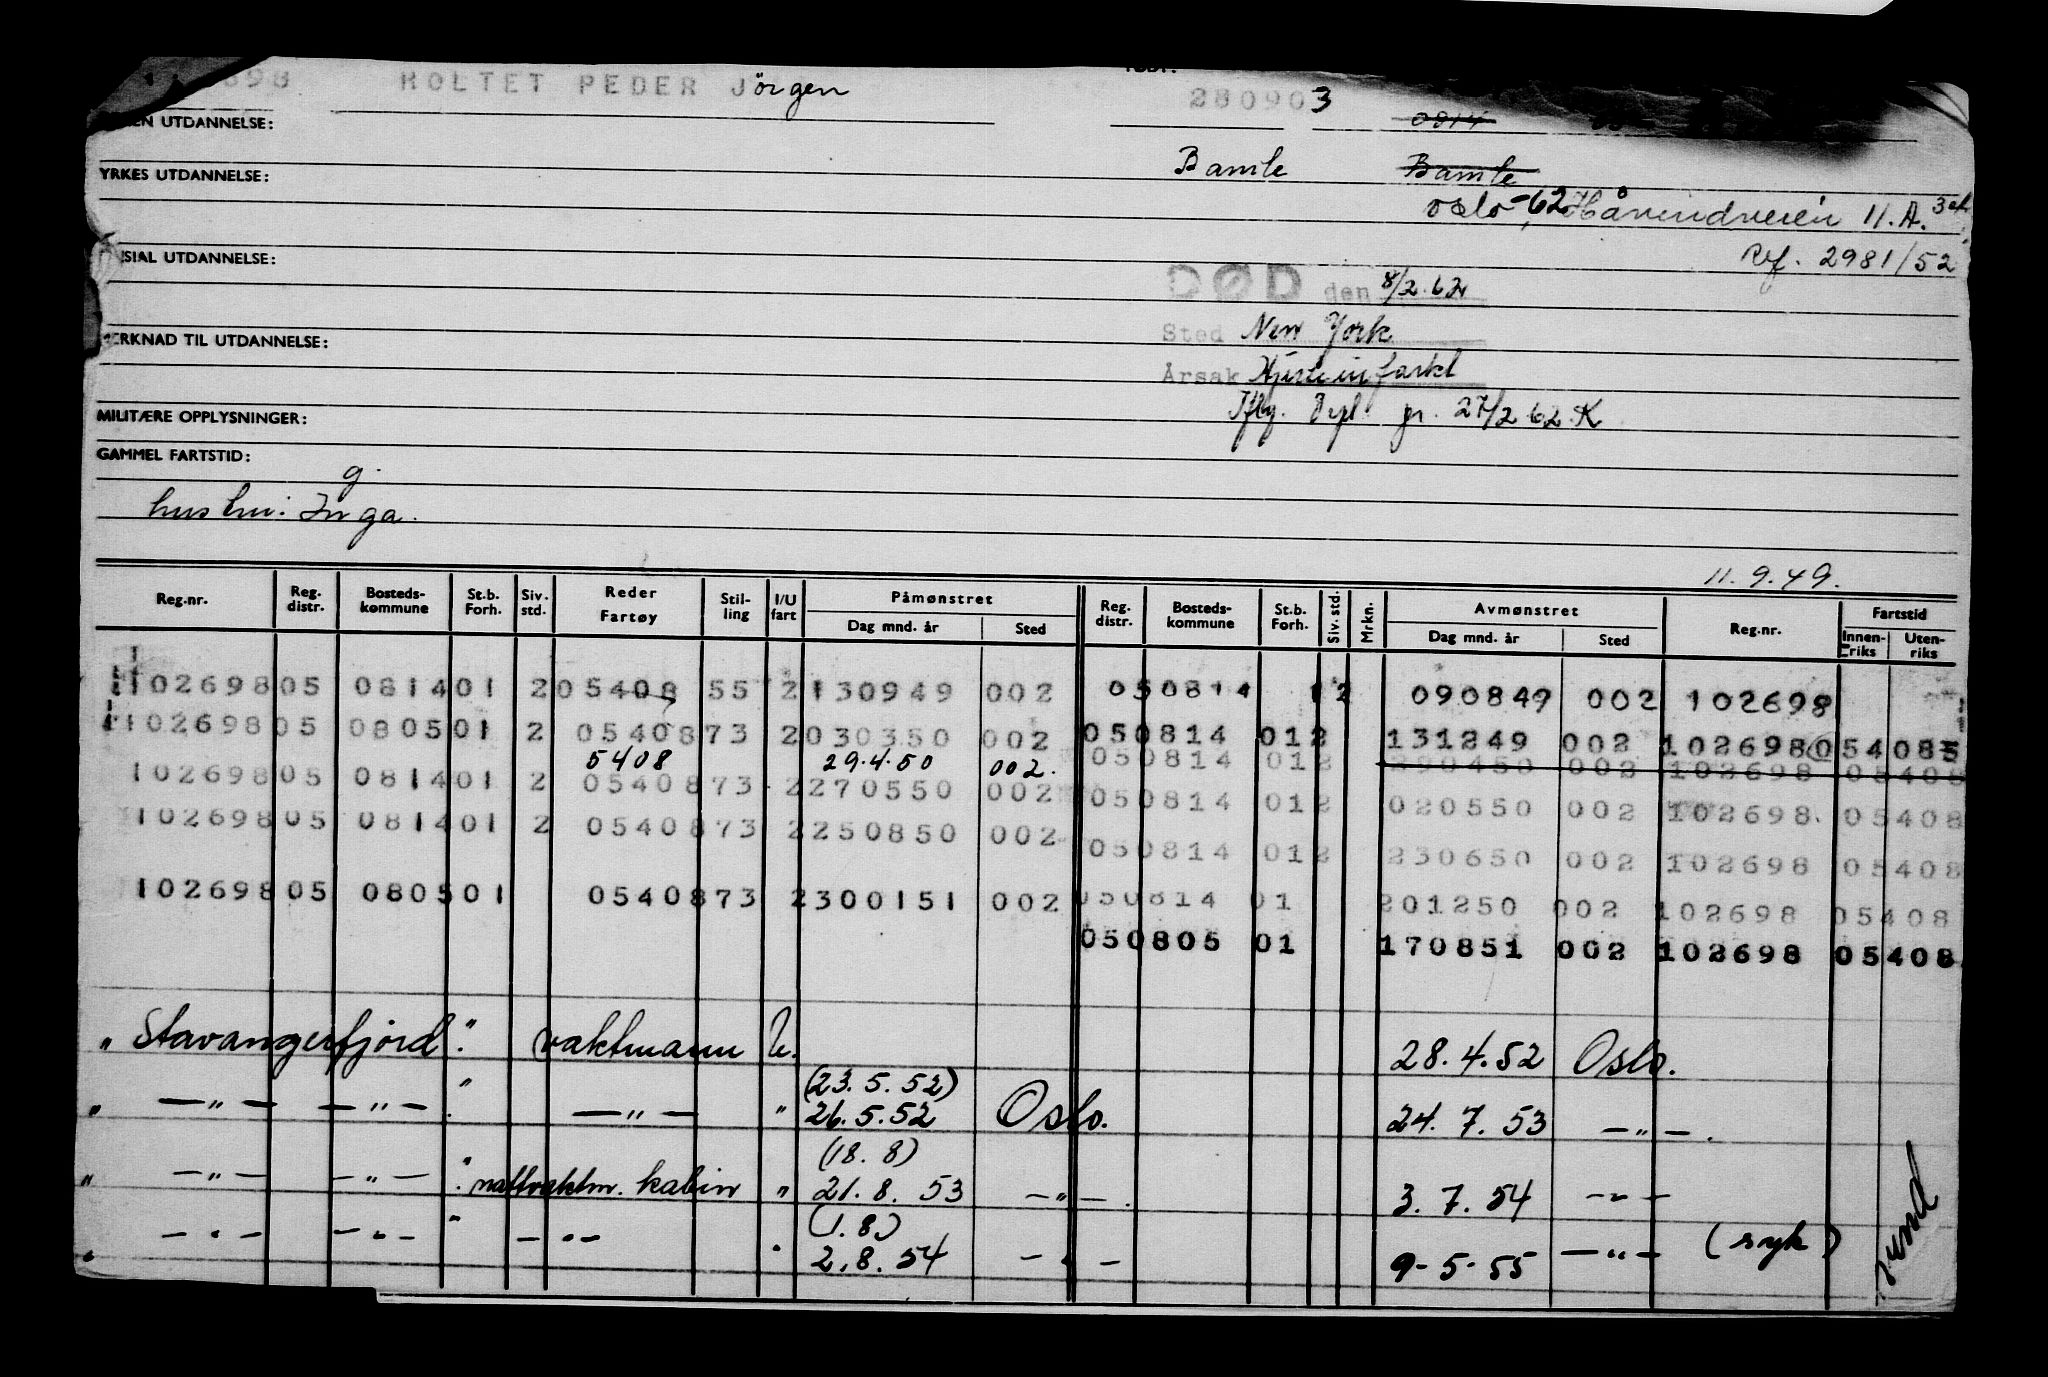 698 HOLTET PEDER Jörgen
280903 0814
EN UTDANNELSE:
Bamle Bamle
YRKES UTDANNELSE:
Oslo-62, Håvindveien 11.A. 3et
SIAL UTDANNELSE: Ref. 2981/52
DØD den 8/2.62
Sted New York
ERKNAD TIL UTDANNELSE:
Årsak Hjerteinfarkt
Iflg. pr. 27/2 62.K
MILITÆRE OPPLYSNINGER:
GAMMEL FARTSTID:
g.
hustru: Inga.
11. 9. 49.
Reg.nr. Reg. distr. Bosteds-kommune St.b. Forh. Siv. std. Reder Fartøy Stil-ling I/U fart Påmønstret Dag mnd. år Sted Reg. distr. Bosteds-kommune St.b. Forh. Siv. std. Mrkn. Avmønstret Dag mnd. år Sted Reg.nr. Fartstid Innen-riks Uten-riks
102698 05 0814 01 2 05408 55 2 130949 002 05 0814 12 090849 002 102698
102698 05 0805 01 2 05408 73 2 030350 002 05 0814 01 2 131249 002 102698 05408
5408 29.4.50 002. 05 0814 01 2 290450 002 102698 05408
102698 05 0814 01 2 05408 73 2 270550 002 05 0814 01 2 020550 002 102698 05408
102698 05 0814 01 2 05408 73 2 250850 002 05 0814 01 2 230650 002 102698 05408
102698 05 0805 01 05408 73 2 300151 002 05 0814 01 201250 002 102698 05408
05 0805 01 170851 002 102698 05408
" Stavangerfjord." vaktmann U. 28. 4. 52 Oslo.
(23. 5. 52)
" —"— —"— ." —"— " 26. 5. 52 Oslo. 24. 7. 53 —"—.
(18. 8)
" —"— —"— ." nattvaktm. kabin " 21. 8. 53 —"—. 3. 7. 54 —"—
(1. 8)
" —"— —"— " —"— " 2. 8. 54 —"— 9-5-55 —"— (syk)